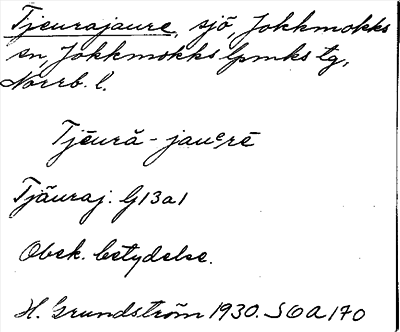 Tjeurajaure, sjö, Jokkmokks
sn, Jokkmokks lpmks tg,
Norrb. l.
Tjēurā - jauᵉrē
Tjäuraj. G13a1
Obek. betydelse.
H. Grundström 1930. SOA 170